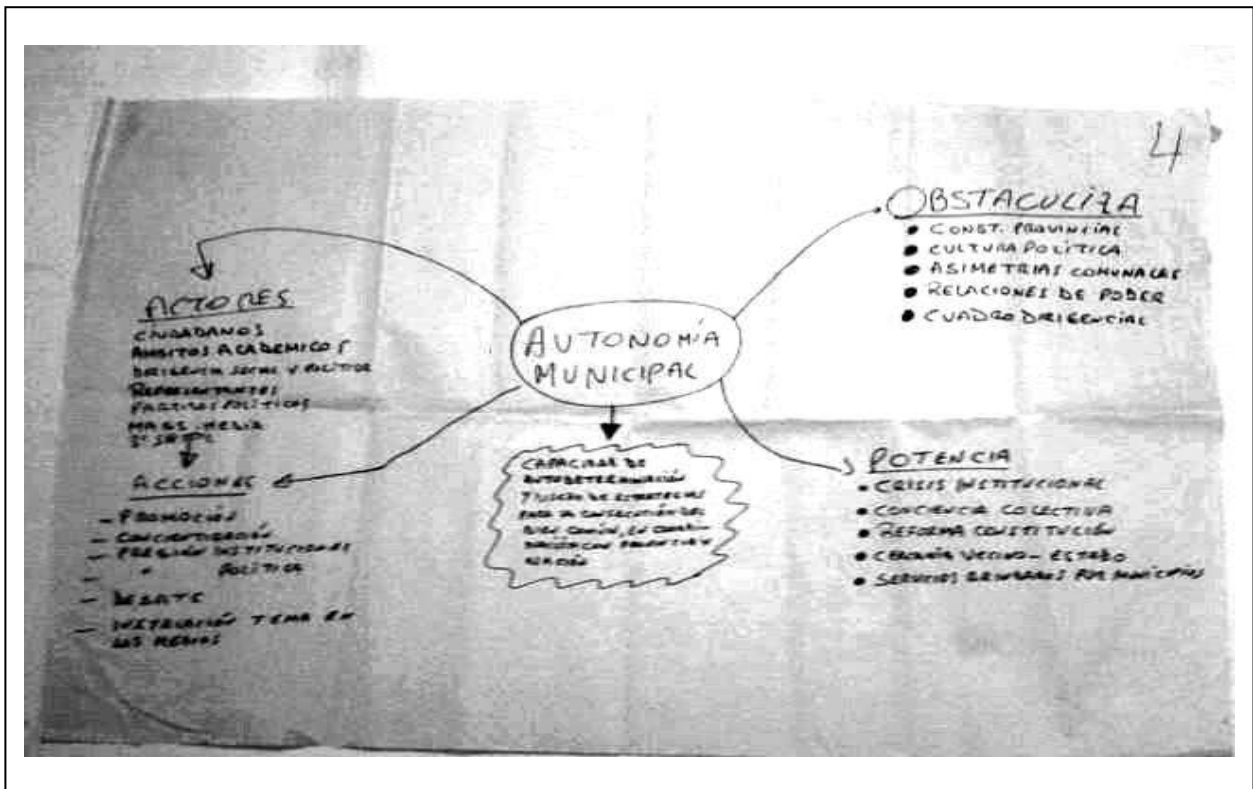 4
OBSTACULIZA
• CONST. PROVINCIAL
• CULTURA POLÍTICA
• ASIMETRIAS COMUNALES
• RELACIONES DE PODER
• CUADRO DIRIGENCIAL
ACTORES
CIUDADANOS
AMBITOS ACADEMICOS
DIRIGENCIA SOCIAL Y POLÍTICA
REPRESENTANTES
PARTIDOS POLÍTICOS
MASS MEDIA
AUTONOMÍA
MUNICIPAL
ACCIONES
- PROMOCIÓN
- CONCIENTIZACIÓN
- PRESIÓN INSTITUCIONES
- " POLÍTICA
- DEBATE
- INSTALACIÓN TEMA EN
LOS MEDIOS
CAPACIDAD DE
AUTODETERMINACIÓN
Y DISEÑO DE ESTRATEGIAS
PARA LA CONSECUCIÓN DEL
BIEN COMÚN, EN
CON PROVINCIA Y
NACIÓN
POTENCIA
• CRISIS INSTITUCIONAL
• CONCIENCIA COLECTIVA
• REFORMA CONSTITUCIÓN
• CERCANÍA VECINO - ESTADO
• SERVICIOS BRINDADOS POR MUNICIPIOS